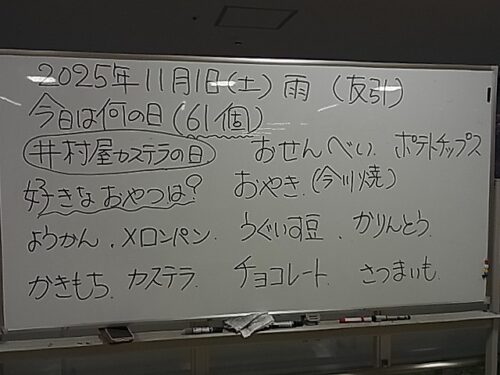 2025年11月1日(土) 雨 (友引)
今日は何の日(61個)
井村屋カステラの日 おせんべい. ポテトチップス
好きなおやつは? おやき.(今川焼)
ようかん.メロンパン. うぐいす豆. かりんとう.
かきもち.カステラ. チョコレート. さつまいも.